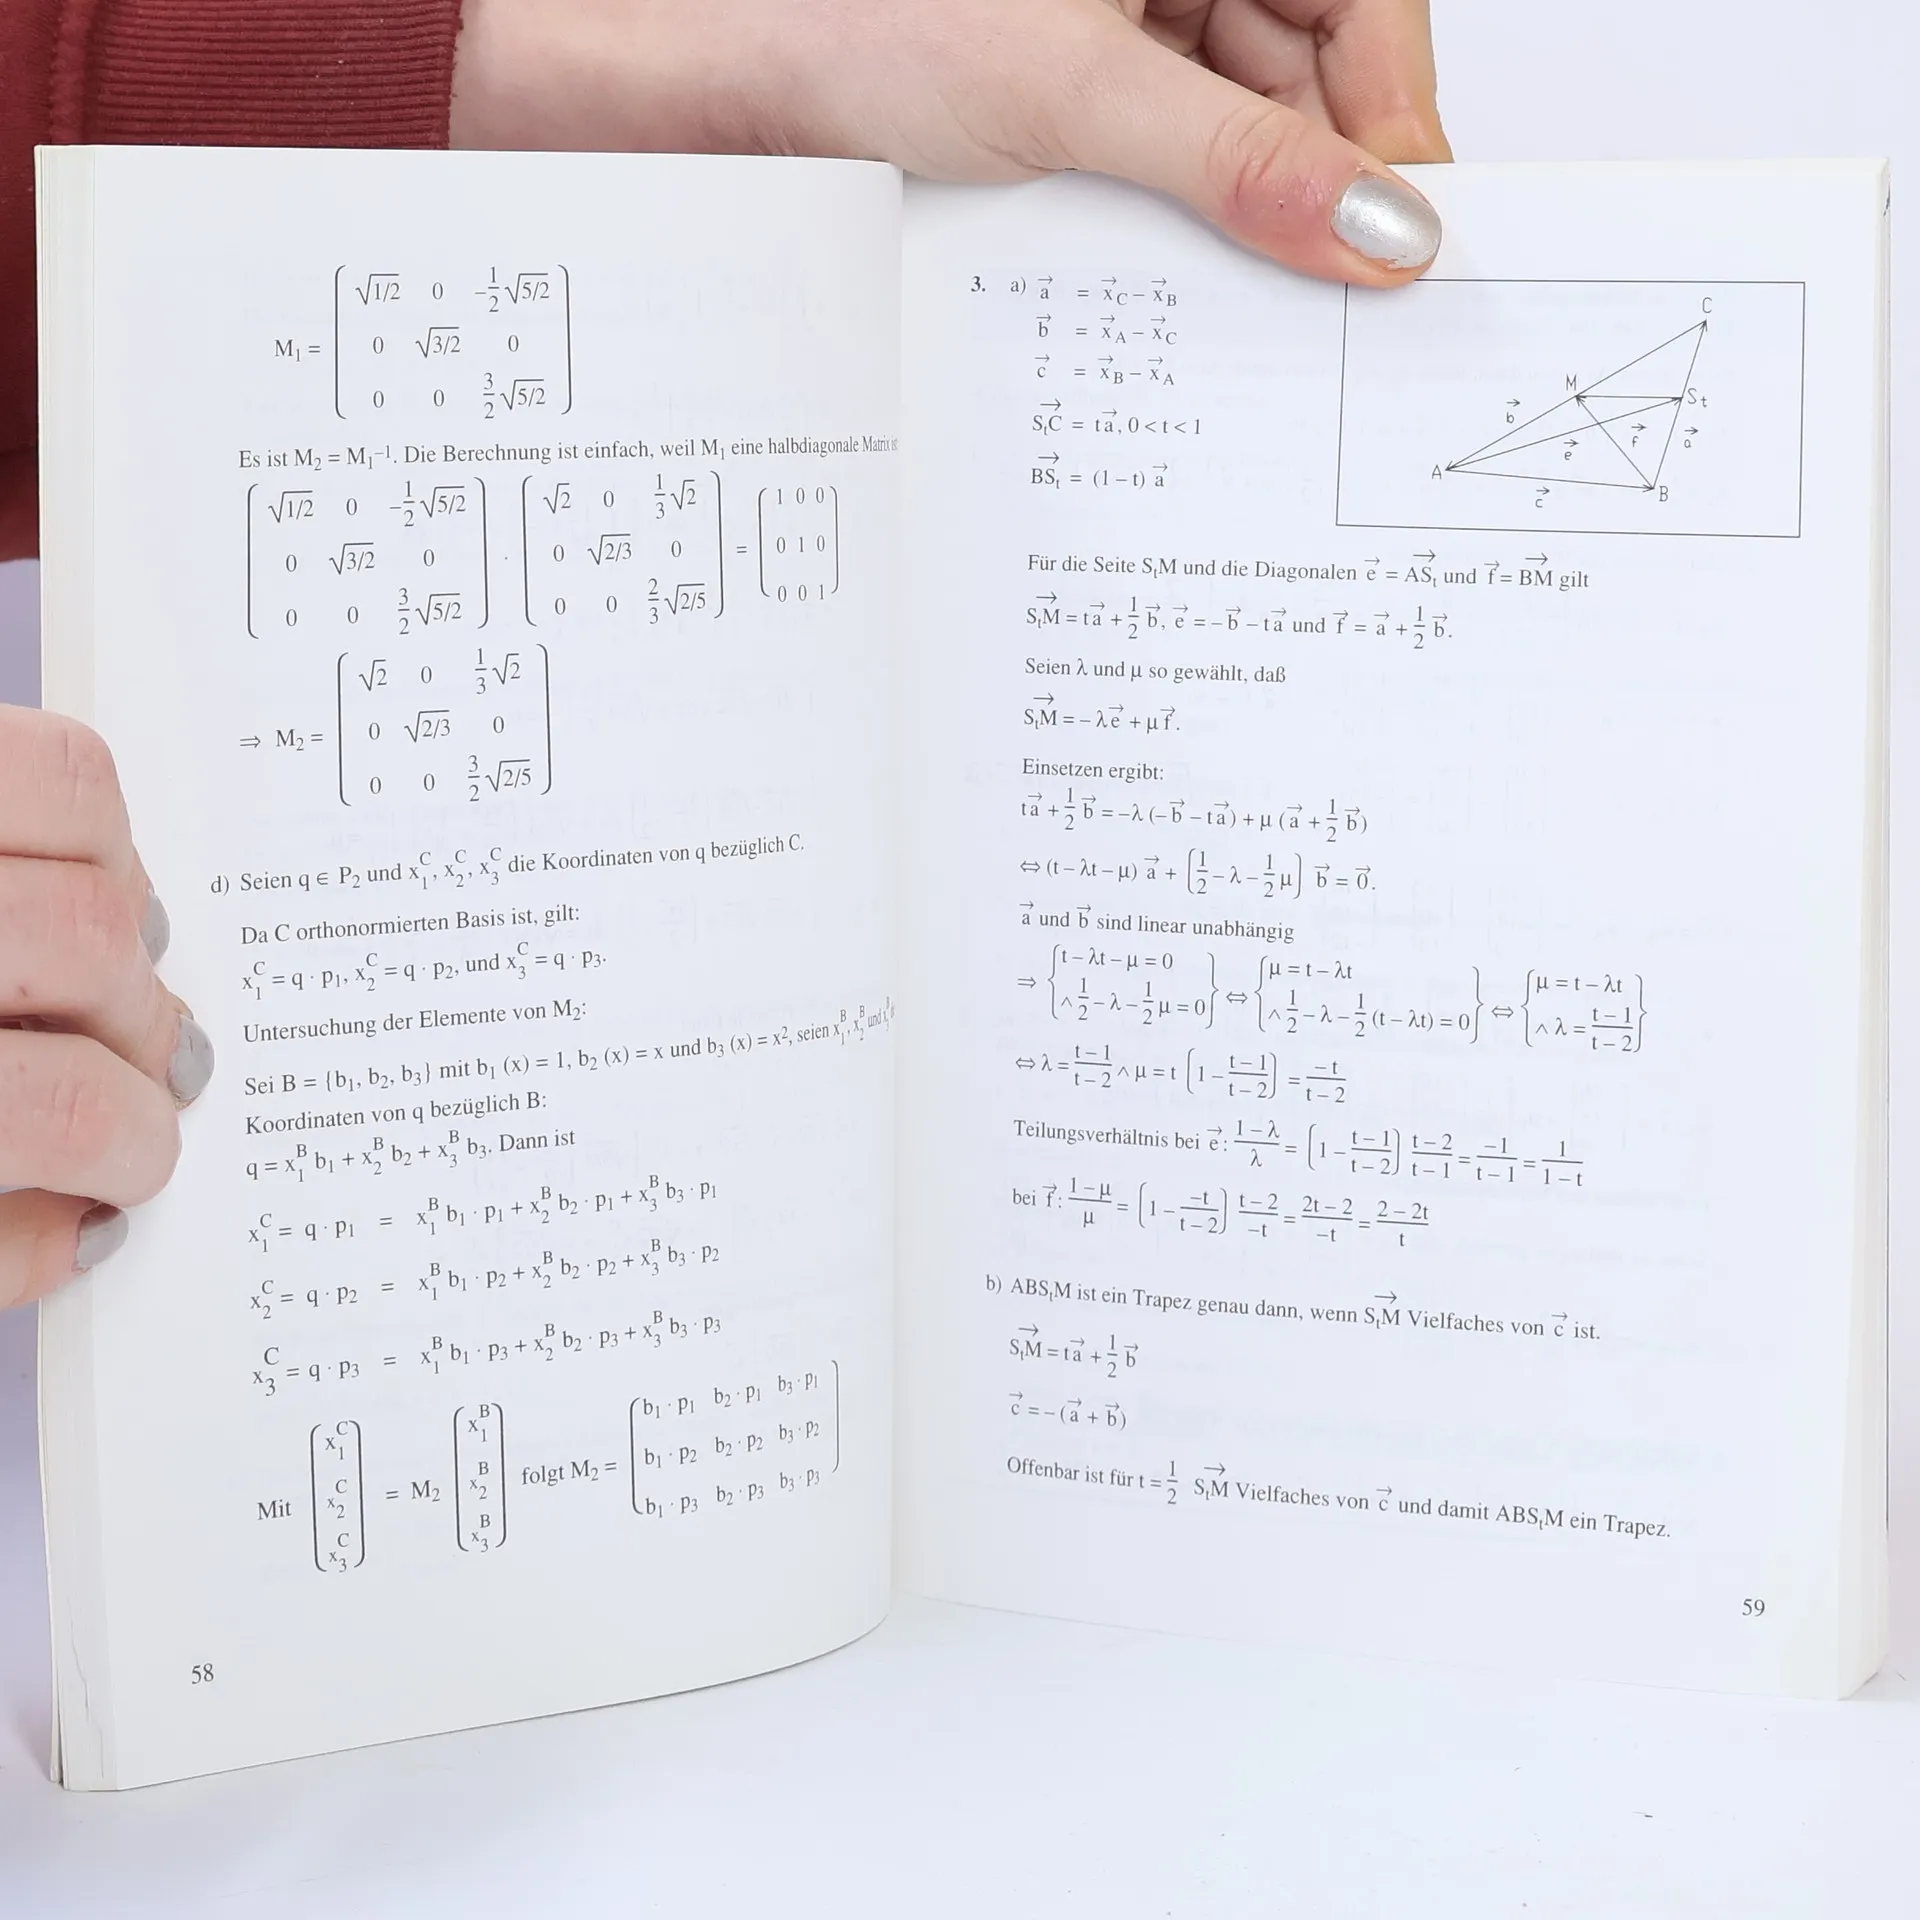 M₁ = ( √1/2 0 -1/2 √5/2
0 √3/2 0
0 0 3/2 √5/2 )
Es ist M₂ = M₁⁻¹. Die Berechnung ist einfach, weil M₁ eine halbdiagonale Matrix ist
( √1/2 0 -1/2 √5/2
0 √3/2 0
0 0 3/2 √5/2 ) · ( √2 0 1/3 √2
0 √2/3 0
0 0 2/3 √2/5 ) = ( 1 0 0
0 1 0
0 0 1 )
⇒ M₂ = ( √2 0 1/3 √2
0 √2/3 0
0 0 3/2 √2/5 )
d) Seien q ∈ P₂ und x₁ᶜ, x₂ᶜ, x₃ᶜ die Koordinaten von q bezüglich C.
Da C orthonormierten Basis ist, gilt:
x₁ᶜ = q · p₁, x₂ᶜ = q · p₂, und x₃ᶜ = q · p₃.
Untersuchung der Elemente von M₂:
Sei B = {b₁, b₂, b₃} mit b₁ (x) = 1, b₂ (x) = x und b₃ (x) = x², seien x₁ᴮ, x₂ᴮ und x₃ᴮ
Koordinaten von q bezüglich B:
q = x₁ᴮ b₁ + x₂ᴮ b₂ + x₃ᴮ b₃. Dann ist
x₁ᶜ = q · p₁ = x₁ᴮ b₁ · p₁ + x₂ᴮ b₂ · p₁ + x₃ᴮ b₃ · p₁
x₂ᶜ = q · p₂ = x₁ᴮ b₁ · p₂ + x₂ᴮ b₂ · p₂ + x₃ᴮ b₃ · p₂
x₃ᶜ = q · p₃ = x₁ᴮ b₁ · p₃ + x₂ᴮ b₂ · p₃ + x₃ᴮ b₃ · p₃
Mit ( x₁ᶜ x₂ᶜ x₃ᶜ ) = M₂ ( x₁ᴮ x₂ᴮ x₃ᴮ ) folgt M₂ = ( b₁ · p₁ b₂ · p₁ b₃ · p₁
b₁ · p₂ b₂ · p₂ b₃ · p₂
b₁ · p₃ b₂ · p₃ b₃ · p₃ )
58
3. a) a⃗ = x⃗_C – x⃗_B
b⃗ = x⃗_A – x⃗_C
c⃗ = x⃗_B – x⃗_A
S⃗ₜC = ta⃗, 0 < t < 1
B⃗Sₜ = (1 – t) a⃗
C
M
Sₜ
b⃗
e⃗
f⃗
a⃗
A
B
c⃗
Für die Seite SₜM und die Diagonalen e⃗ = A⃗Sₜ und f⃗ = B⃗M gilt
S⃗ₜM = ta⃗ + 1/2 b⃗, e⃗ = – b⃗ – ta⃗ und f⃗ = a⃗ + 1/2 b⃗.
Seien λ und μ so gewählt, daß
S⃗ₜM = – λe⃗ + μf⃗.
Einsetzen ergibt:
ta⃗ + 1/2 b⃗ = –λ (–b⃗ – ta⃗) + μ (a⃗ + 1/2 b⃗)
⇔ (t – λt – μ) a⃗ + (1/2 – λ – 1/2 μ) b⃗ = 0⃗.
a⃗ und b⃗ sind linear unabhängig
⇒ { t – λt – μ = 0 ∧ 1/2 – λ – 1/2 μ = 0 } ⇔ { μ = t – λt ∧ 1/2 – λ – 1/2 (t – λt) = 0 } ⇔ { μ = t – λt ∧ λ = (t – 1)/(t – 2) }
⇔ λ = (t – 1)/(t – 2) ∧ μ = t (1 – (t – 1)/(t – 2)) = –t/(t – 2)
Teilungsverhältnis bei e⃗: (1 – λ)/λ = (1 – (t – 1)/(t – 2)) (t – 2)/(t – 1) = –1/(t – 1) = 1/(1 – t)
bei f⃗: (1 – μ)/μ = (1 – –t/(t – 2)) (t – 2)/–t = (2t – 2)/–t = (2 – 2t)/t
b) ABSₜM ist ein Trapez genau dann, wenn S⃗ₜM Vielfaches von c⃗ ist.
S⃗ₜM = ta⃗ + 1/2 b⃗
c⃗ = – (a⃗ + b⃗)
Offenbar ist für t = 1/2 S⃗ₜM Vielfaches von c⃗ und damit ABSₜM ein Trapez.
59